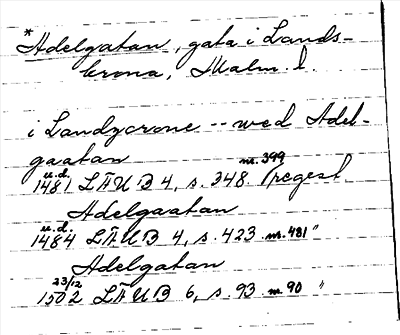 *Adelgatan, gata i Lands-
krona, Malm. l.
i Landzcrone -- wed Adel-
gaatan
u.d.
1481 LÄUB 4, s. 348 nr. 399 (regest
Adelgaatan
u.d.
1484 LÄUB 4, s. 423 nr. 481 "
Adelgatan
23/12
1502 LÄUB 6, s. 93 nr 90 "